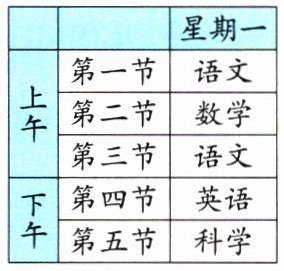 星期一
上午
第一节 语文
第二节 数学
第三节 语文
下午
第四节 英语
第五节 科学